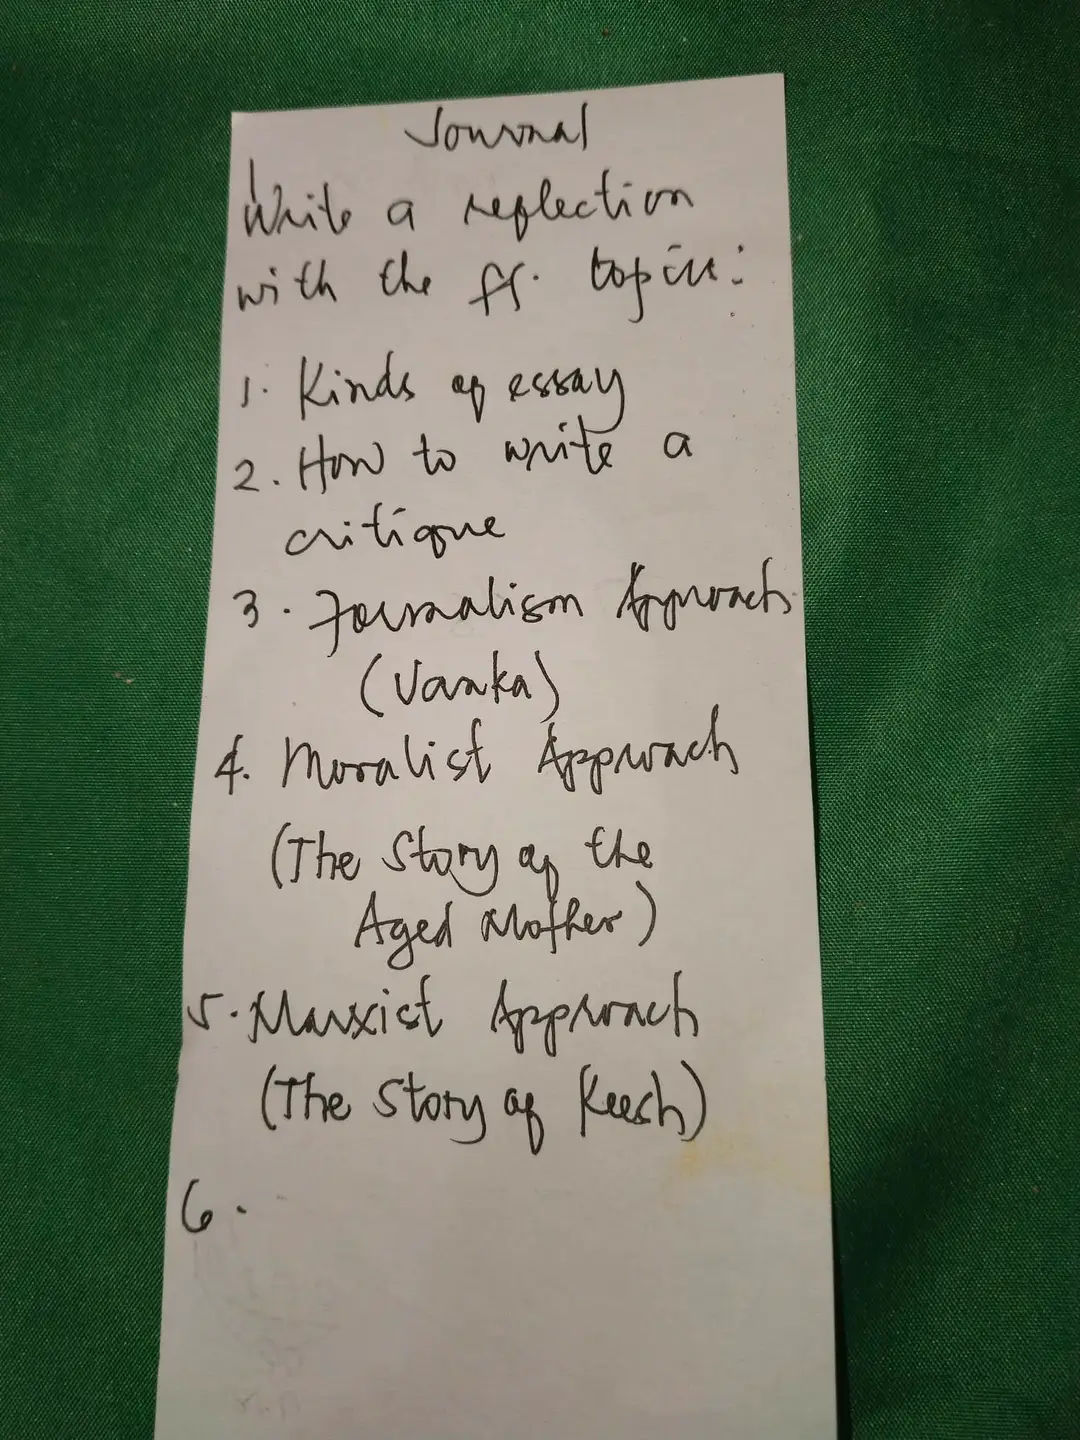 Journal
Write a reflection
with the ff. topics:
1. Kinds of essay
2. How to write a
critique
3. Journalism Approach
(Vanka)
4. Moralist Approach
(The Story of the
Aged Mother)
5. Marxist Approach
(The Story of Keesh)
6.